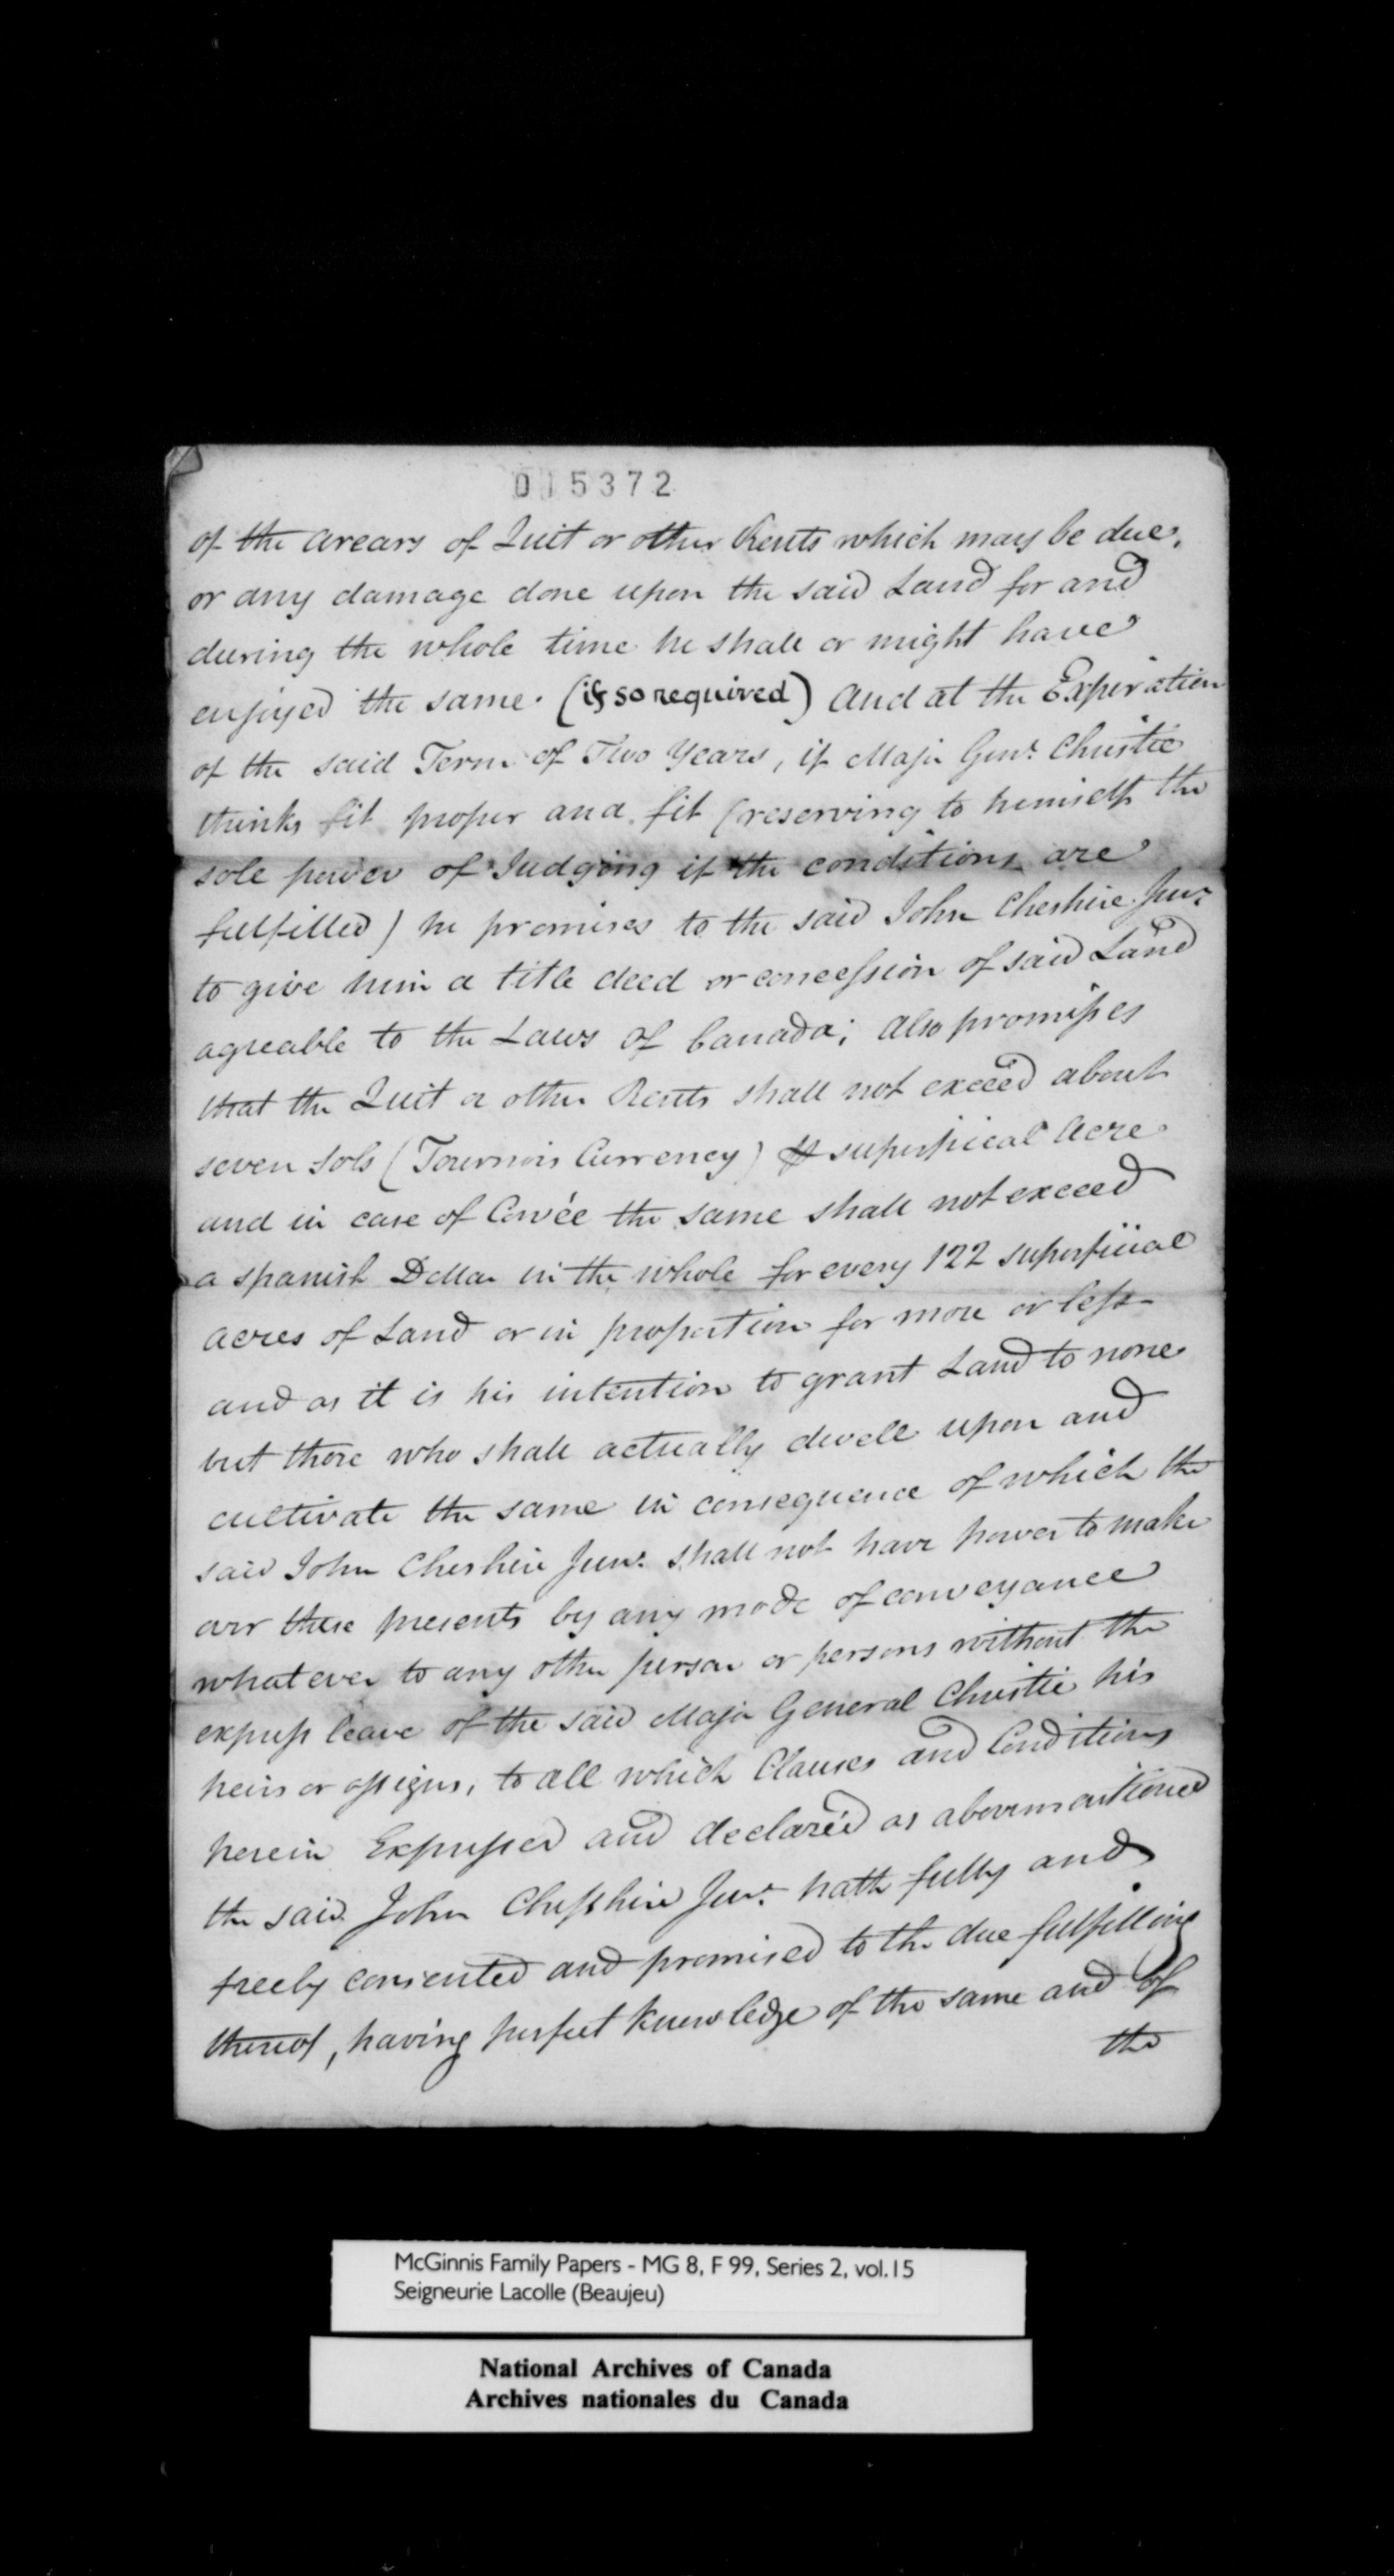 015372
of the arears of Quit or other Rents which may be due,
or any damage done upon the said Land for and
during the whole time he shall or might have
enjoyed the same. (if so required) and at the Expiration
of the said Term of Two Years, if Major Genl. Christie
thinks fit proper and fit (reserving to himself the
sole power of Judging if the conditions are
fulfilled) he promises to the said John Cheshire Junr
to give him a title deed or concession of said Land
agreable to the Laws of Canada; also promises
that the Quit or other Rents shall not exceed about
seven Sols (Tournois Currency) ⅌ superficial Acre
and in case of Corvée the same shall not exceed
a spanish Dollar in the whole for every 122 superficial
acres of Land or in proportion for more or less
and as it is his intention to grant Land to none
but those who shall actually dwell upon and
cultivate the same in consequence of which the
said John Cheshire Junr. shall not have power to make
over these presents by any mode of conveyance
whatever to any other person or persons without the
express leave of the said Major General Christie his
heirs or assigns, to all which Clauses and Conditions
herein Expressed and declared as abovementioned
the said John Chesshire Junr. hath fully and
freely consented and promised to the due fulfilling
thereof, having perfect knowledge of the same and of
the
McGinnis Family Papers - MG 8, F 99, Series 2, vol.15
Seigneurie Lacolle (Beaujeu)
National Archives of Canada
Archives nationales du Canada